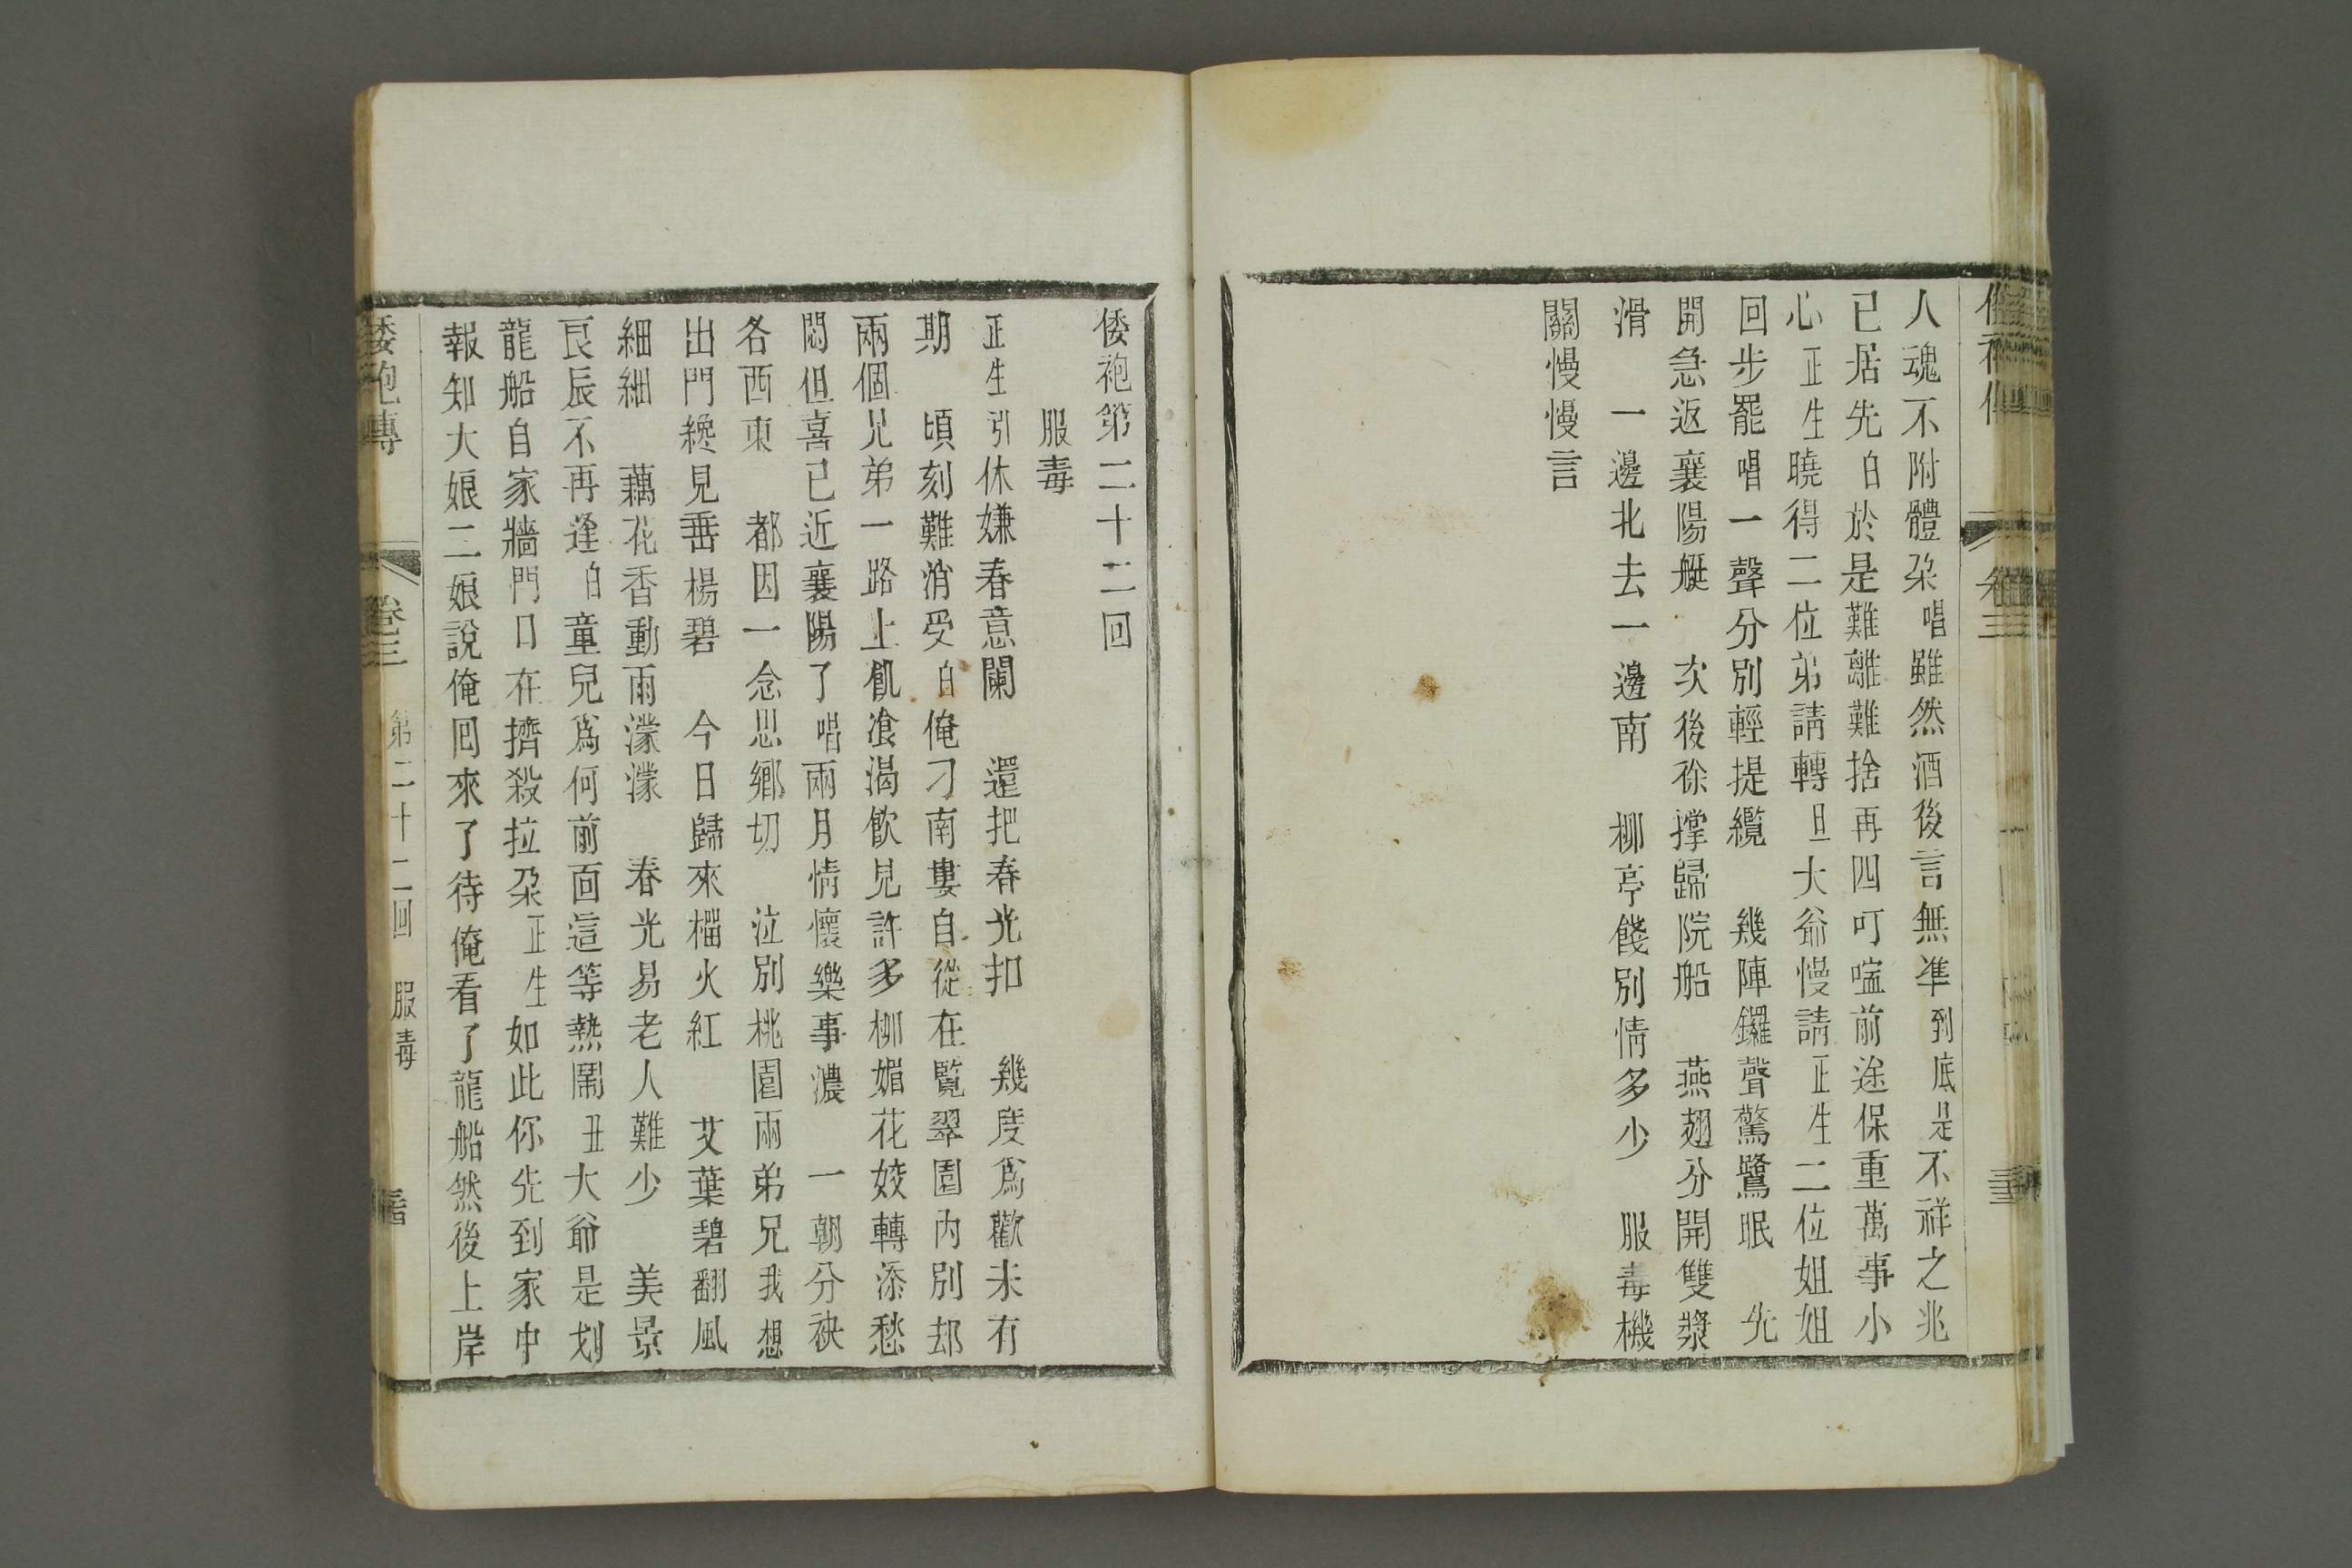 人魂不附體朶唱雖然酒後言無凖到底是不祥之兆
已居先白於是難離難捨再四叮嚀前途保重萬事小
心正生曉得二位弟請轉旦大爺慢請正生二位姐姐
回步罷唱一聲分別輕提纜　幾陣鑼聲驚鷺眠　先
開急返襄陽艇　次後徐撑歸院船　燕翅分開雙槳
滑　一邊北去一邊南　柳亭餞別情多少　服毒機
關慢慢言
倭袍第二十二回
服毒
正生引休嫌春意闌　還把春光扣　幾度爲歡未有
期　頃刻難消受白俺刁南婁自從在覽翠園內別却
兩個兄弟一路上飢飡渴飲見許多柳媚花姣轉添愁
悶但喜已近襄陽了唱兩月情懷樂事濃　一朝分袂
各西東　都因一念思鄉切　泣別桃園兩弟兄我想
出門纔見垂楊碧　今日歸來榴火紅　艾葉碧翻風
細細　藕花香動雨濛濛　春光易老人難少　美景
良辰不再逢白童兒爲何前面這等熱鬧丑大爺是划
龍船自家牆門口在擠殺拉朶正生如此你先到家中
報知大娘二娘說俺囘來了待俺看了龍船然後上岸
倭袍傳　卷三　第二十二回　服毒